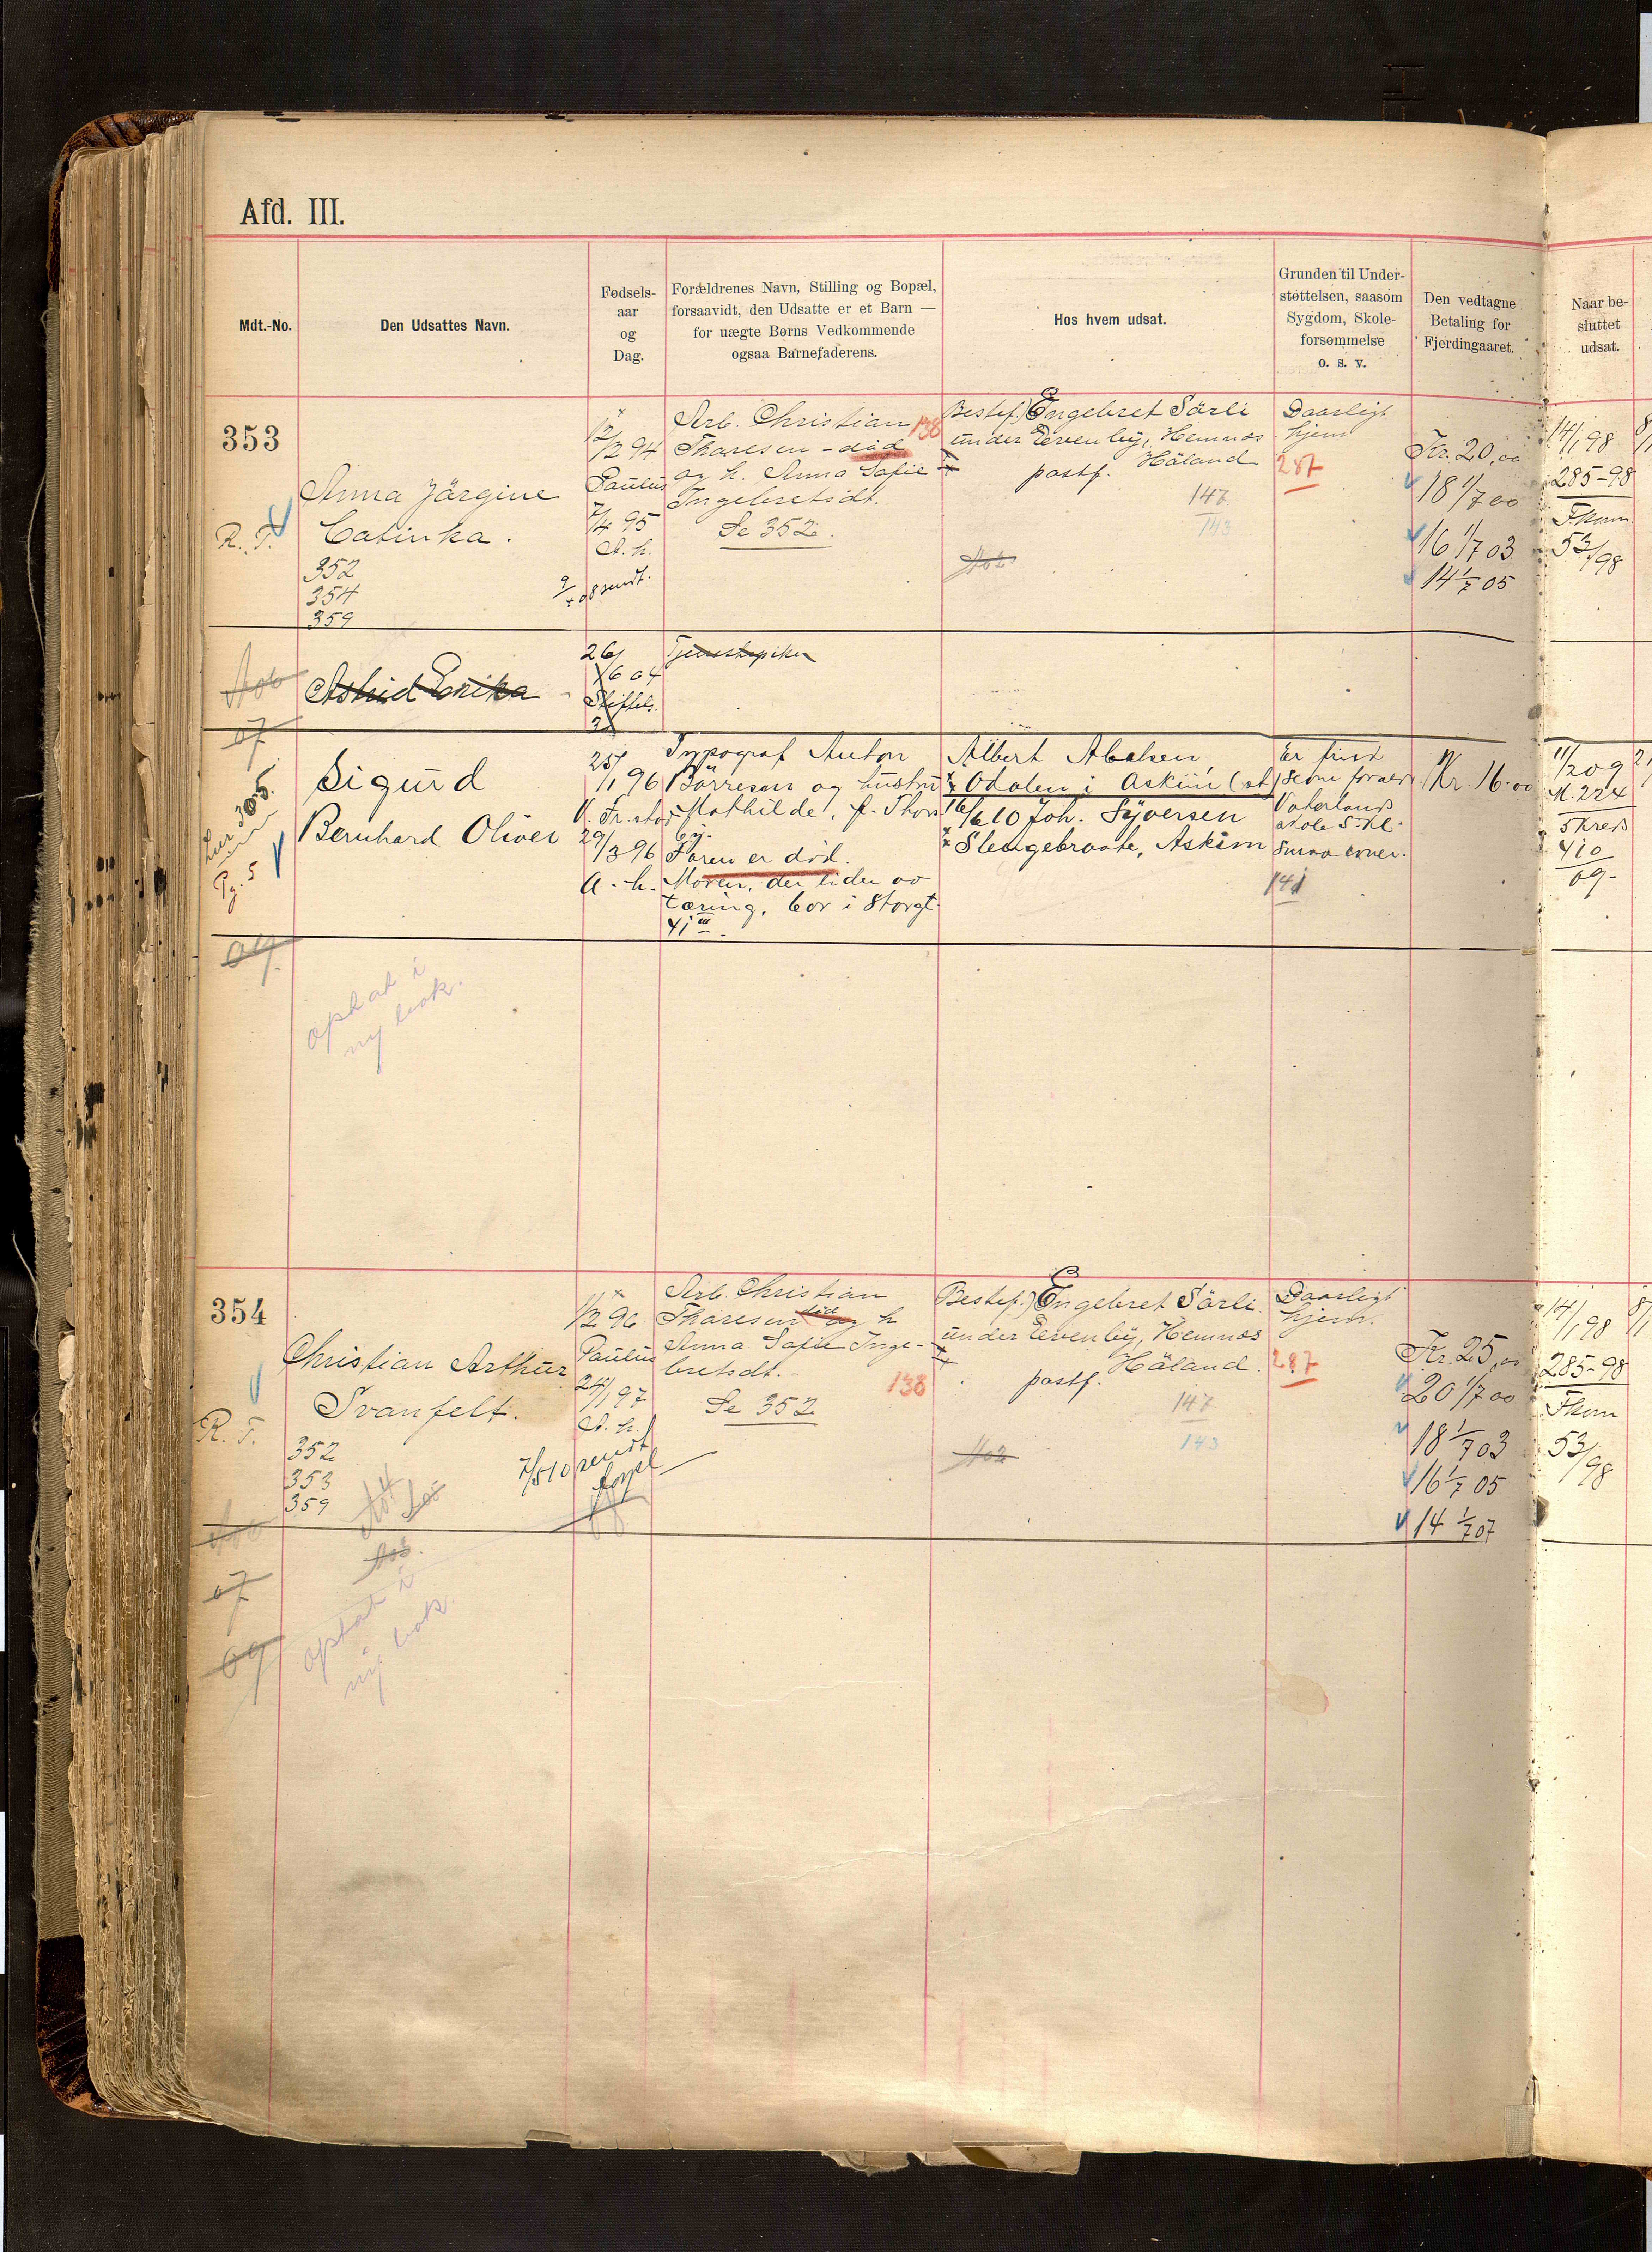 Afd. III.
Mdt.-No.
Den Udsattes Navn.
Fødsels-
aar
og
Dag.
Forældrenes Navn, Stilling og Bopæl,
forsaavidt, den Udsatte er et Barn —
for uægte Børns Vedkommende
ogsaa Barnefaderens.
Hos hvem udsat.
Grunden til Under-
støttelsen, saasom
Sygdom, Skole-
forsømmelse
o. s. v.
Den vedtagne
Betaling for
Fjerdingaaret.
Naar be-
sluttet
udsat.
353
Anna Jörgine
Catinka.
R. T.
352
354
359
12/2 94
Paulus
7/4 95
A. h.
Arb. Christian 138
Thoresen - död
og h. Anna Sofie
Ingebretsdt.
Se 352.
Bestef.) Engebret Sörli
under Revenby, Hemnes
postf. Höland
147
143
Daarligt
hjem
287
Kr. 20,00
18 1/7 00
16 1/7 03
14 1/7 05
14/1 98
285-98
Fkom.
53/98
Astrid Erika
26/
6 04
Tjenestepiken
07
Sigurd
Bernhard Oliver
Pg. 5
25/
1 96
V. Fr. stad
29/
3 96
A. h.
Typograf Anton
Börresen og hustru
Mathilde, f. Thors
by.
Faren er död.
Moren, der lider av
tæring, bor i Storgt
41 III.
Albert Abelsen,
Odalen i Askim (st)
16/6 10 Joh. Syversen
Slengebraate, Askim
Er frisk
Vaterlands
skole 5 kl.
Smaa evner.
141
Kr 16.00
11/2 09
M. 224
5 kreds
410
09.
09.
optat i
ny bok.
354
Christian Arthur
Svanfelt.
R. T.
352
353
359
1/2 96
Paulus
24/1 97
A. h.
7/5 10 sendt
Arb. Christian
Thoresen död og h
Anna Sofie Inge-
bretsdt.
138
Se 352
Bestef.) Engebret Sörli
under Revenby, Hemnes
Höland.
postf.
147
143
Daarligt
hjem.
287
Kr. 25,00
20 1/7 00
18 1/7 03
16 1/7 05
14 1/7 07
14/1 98
285-98
Fkom
53/98
07
09
optat i
ny bok.